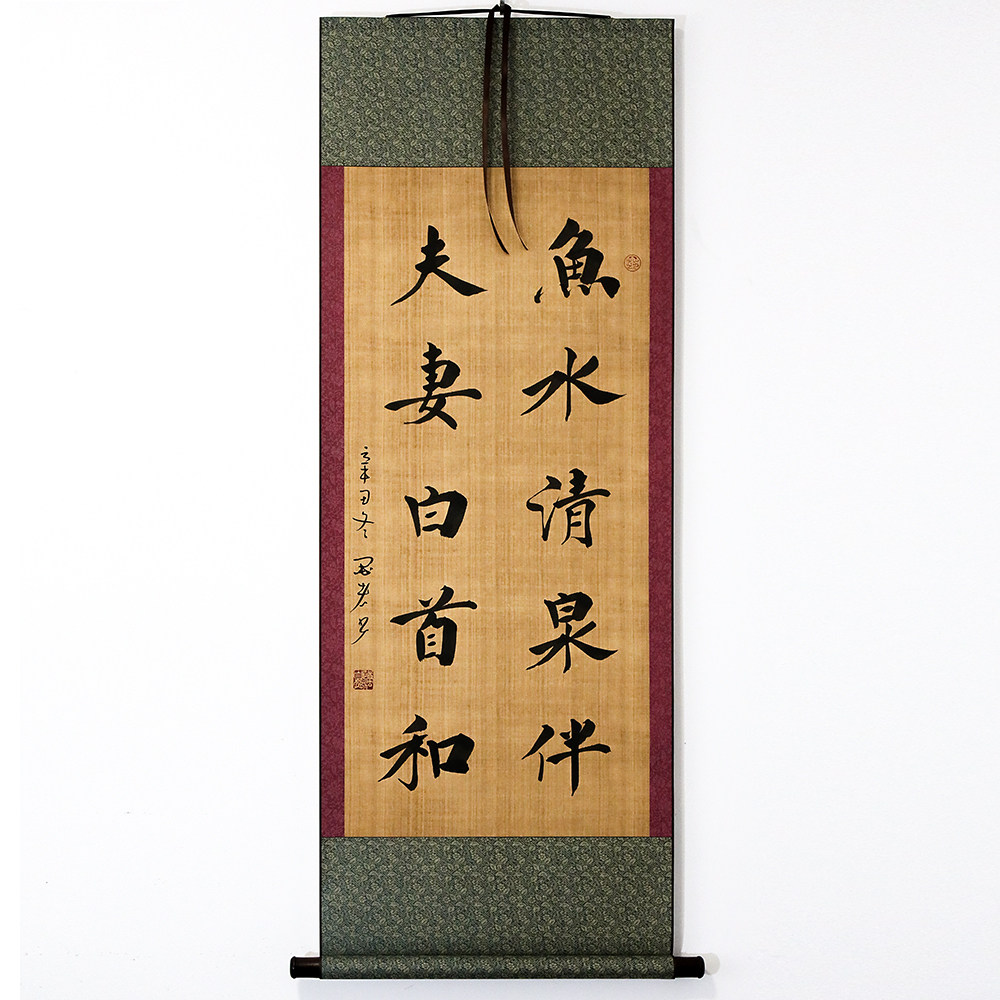 魚水清泉伴
夫妻白首和
辛丑冬